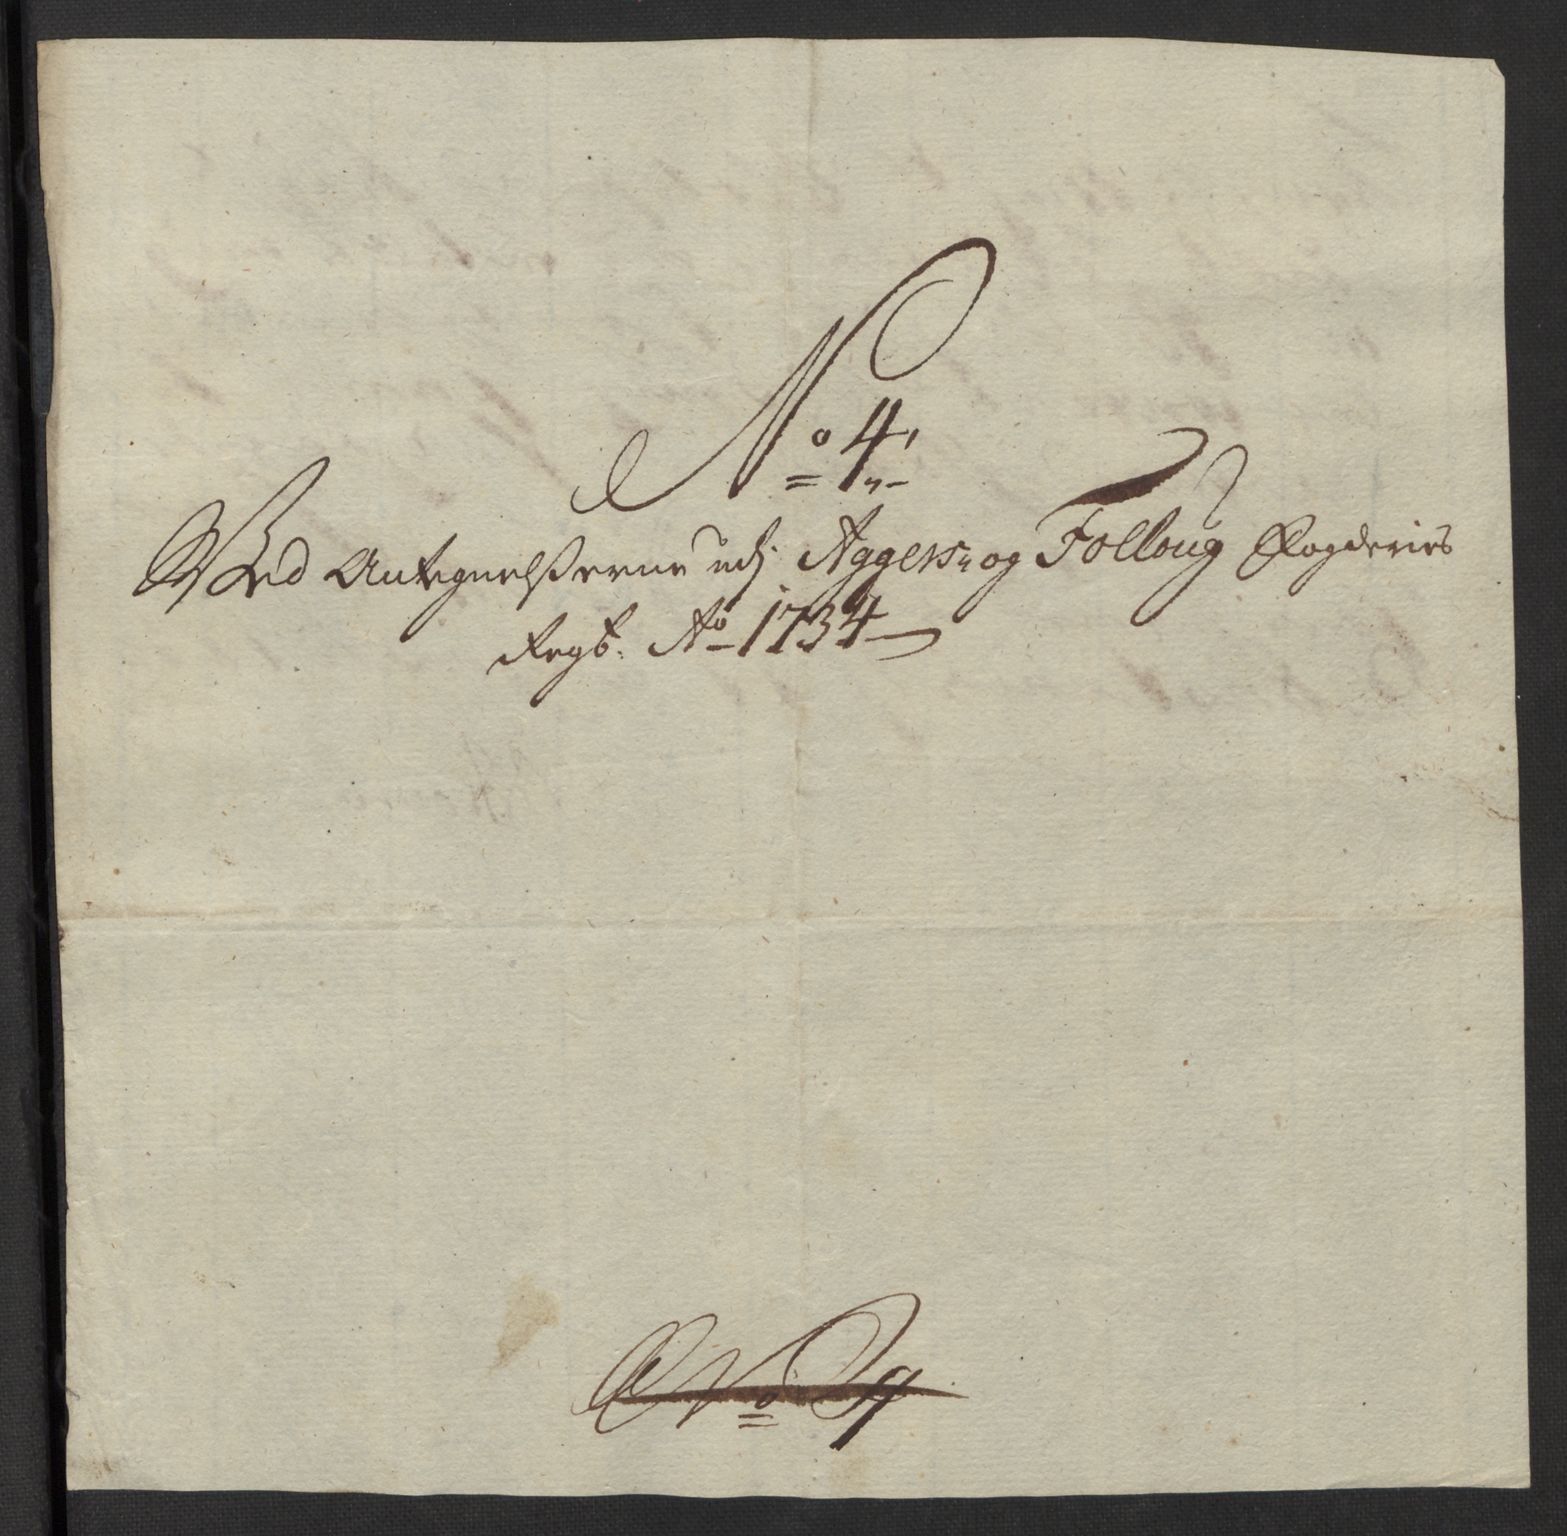 No 4
Ved Antegnelsserne udj Aggers- og Folloug Fogderies
Regsb. Ao 1734
No 9